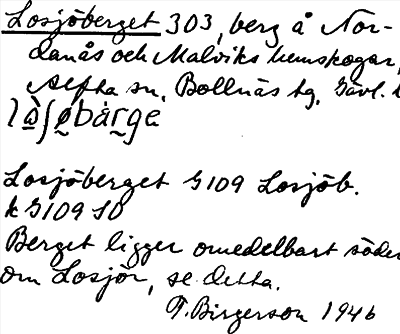 Losjöberget 303, berg å Nor-
danås och Malviks hemskogar,
Alfta sn, Bollnäs tg, Gävl. l
Losjöberget G109 Losjöb.
k G109 SO
Berget ligger omedelbart söder
om Losjön, se detta.
T. Birgerson 1946